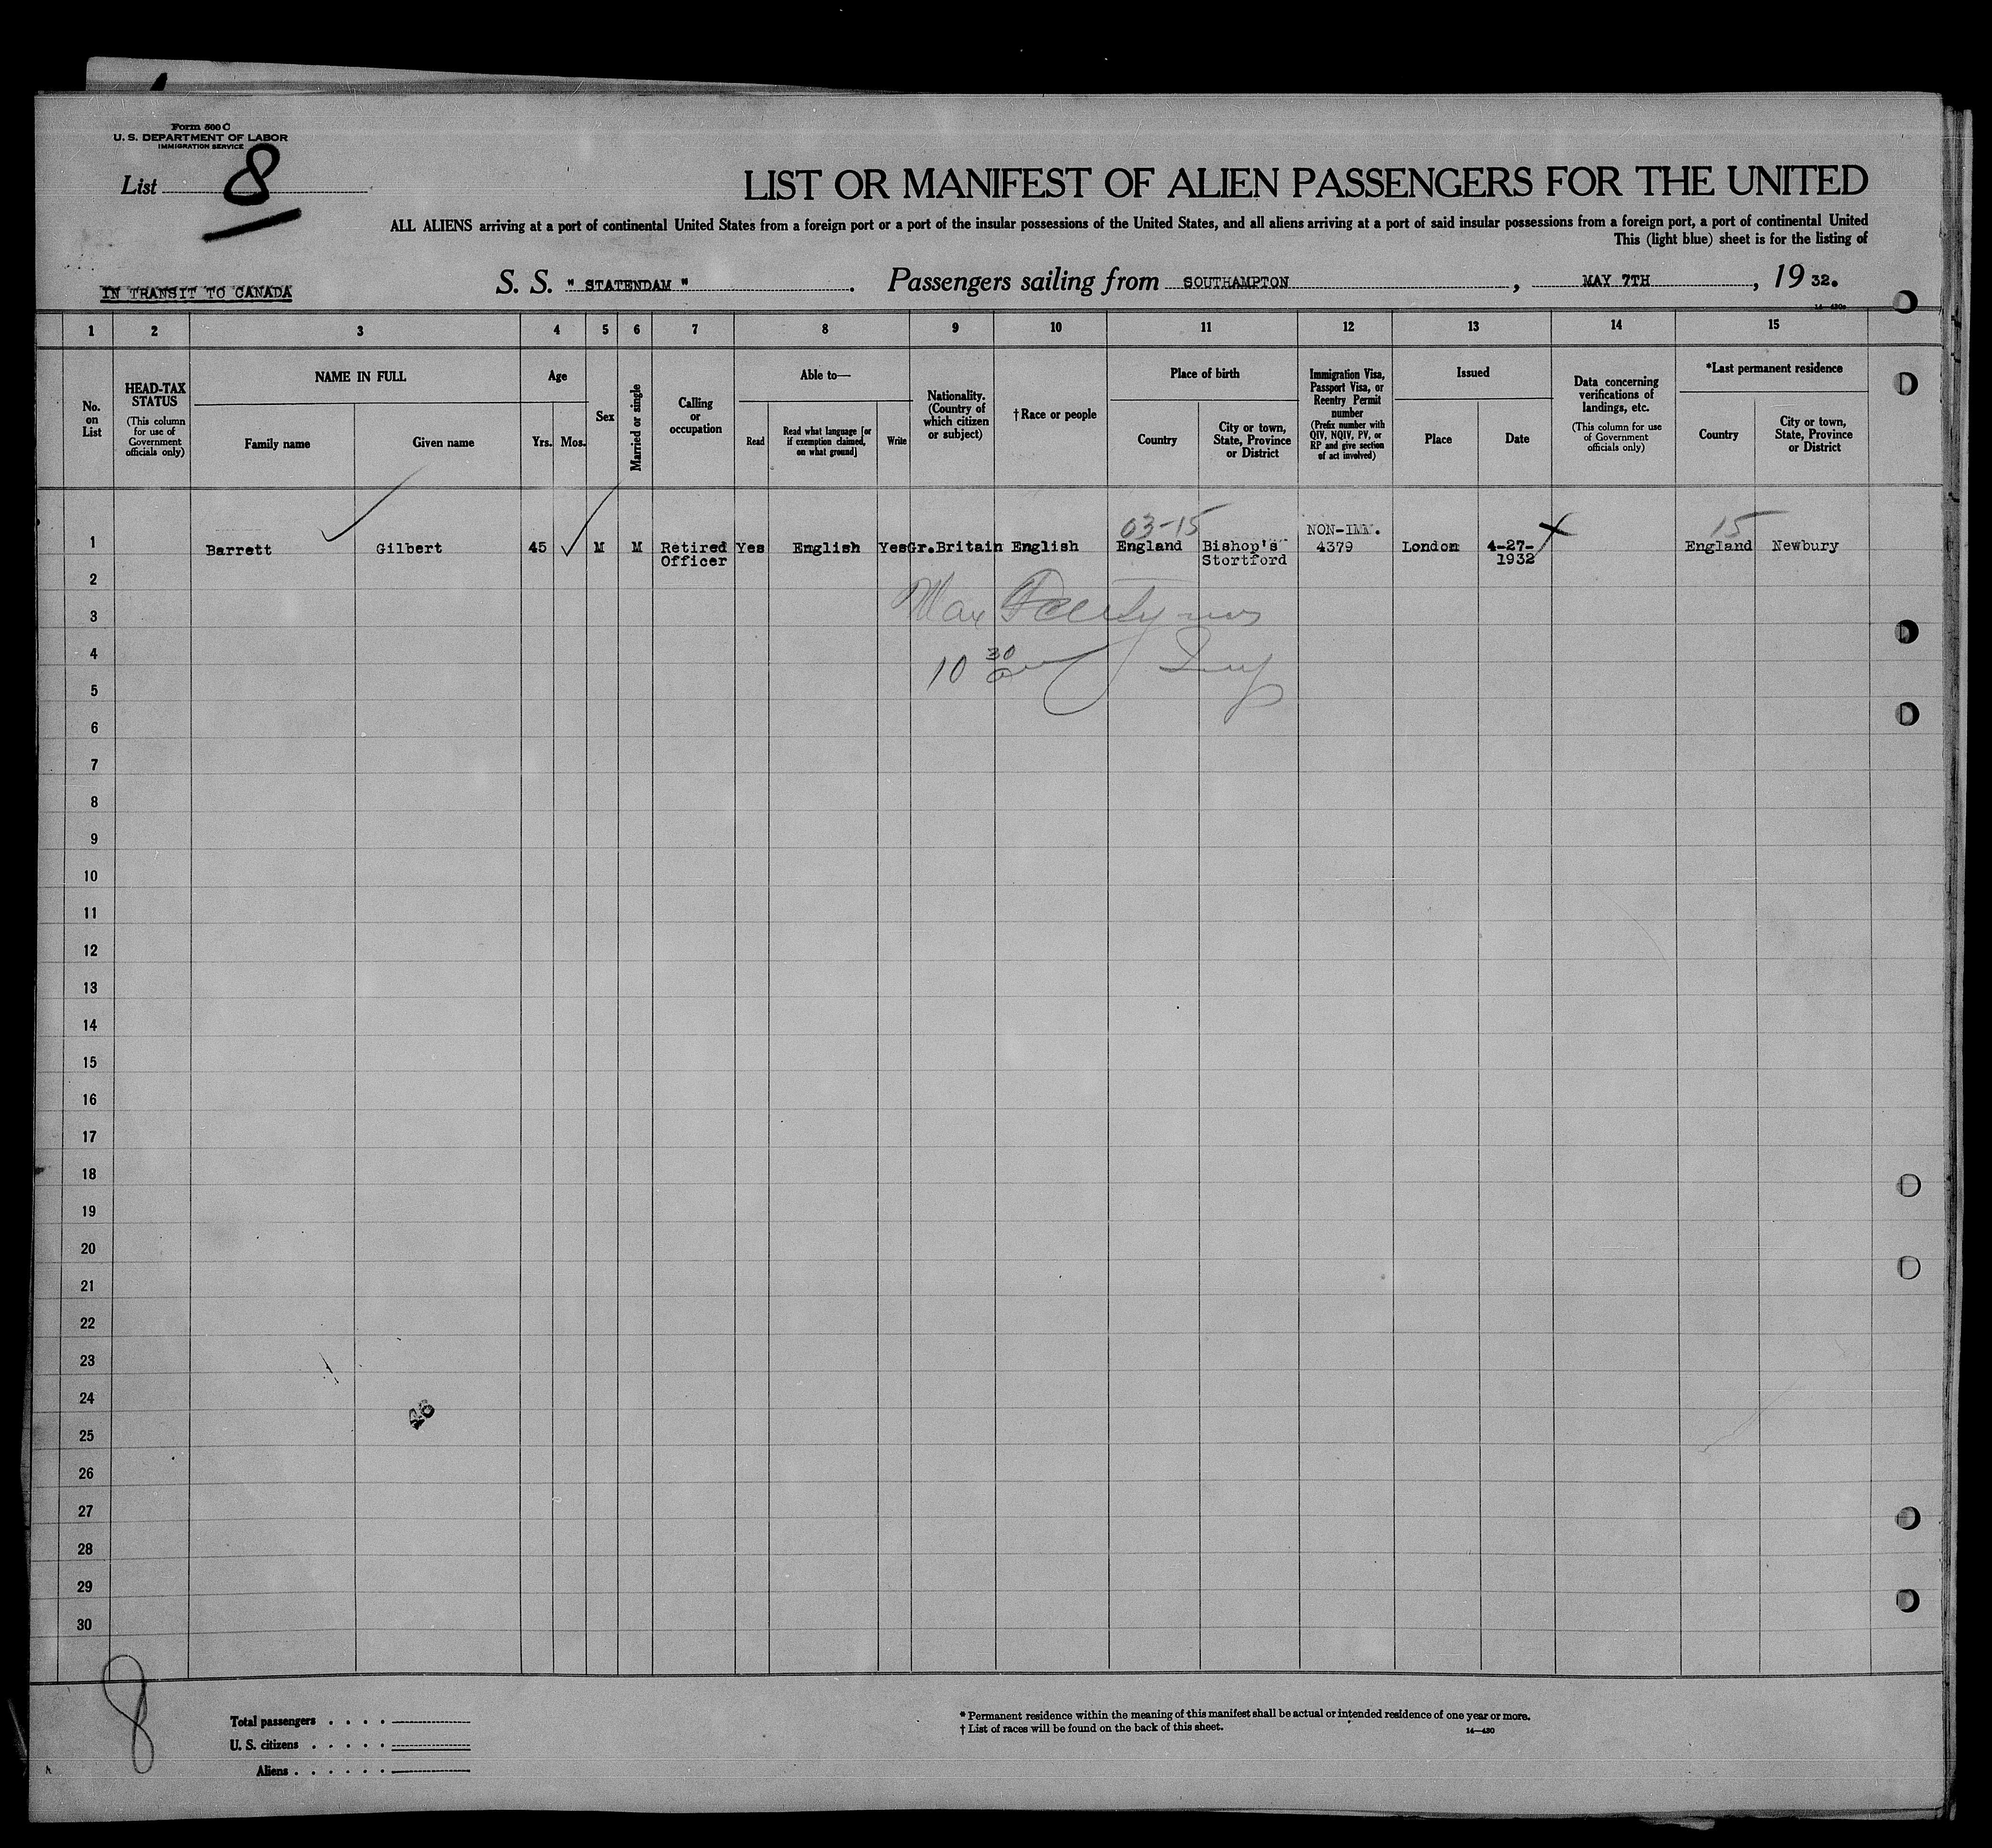 Form 500 C
U. S. DEPARTMENT OF LABOR
IMMIGRATION SERVICE
List 8
LIST OR MANIFEST OF ALIEN PASSENGERS FOR THE UNITED
ALL ALIENS arriving at a port of continental United States from a foreign port or a port of the insular possessions of the United States, and all aliens arriving at a port of said insular possessions from a foreign port, a port of continental United
This (light blue) sheet is for the listing of
IN TRANSIT TO CANADA
S. S. " STATENDAM " . Passengers sailing from SOUTHAMPTON , MAY 7TH , 19 32.
1 2 3 4 5 6 7 8 9 10 11 12 13 14 15
No. on List
HEAD-TAX STATUS
(This column for use of Government officials only)
NAME IN FULL
Family name
Given name
Age
Yrs.
Mos.
Sex
Married or single
Calling or occupation
Able to—
Read
Read what language [or if exemption claimed, on what ground]
Write
Nationality. (Country of which citizen or subject)
† Race or people
Place of birth
Country
City or town, State, Province or District
Immigration Visa, Passport Visa, or Reentry Permit number
(Prefix number with QIV, NQIV, PV, or RP and give section of act involved)
Issued
Place
Date
Data concerning verifications of landings, etc.
(This column for use of Government officials only)
*Last permanent residence
Country
City or town, State, Province or District
03-15 NON-IMM. 15
1 Barrett Gilbert 45 M M Retired Yes English Yes Gr.Britain English England Bishop's 4379 London 4-27- England Newbury
Officer Stortford 1932
2
3
4
10 30
5
6
7
8
9
10
11
12
13
14
15
16
17
18
19
20
21
22
23
24
25
26
27
28
29
30
8
Total passengers
U. S. citizens
Aliens
* Permanent residence within the meaning of this manifest shall be actual or intended residence of one year or more.
† List of races will be found on the back of this sheet.
14—430